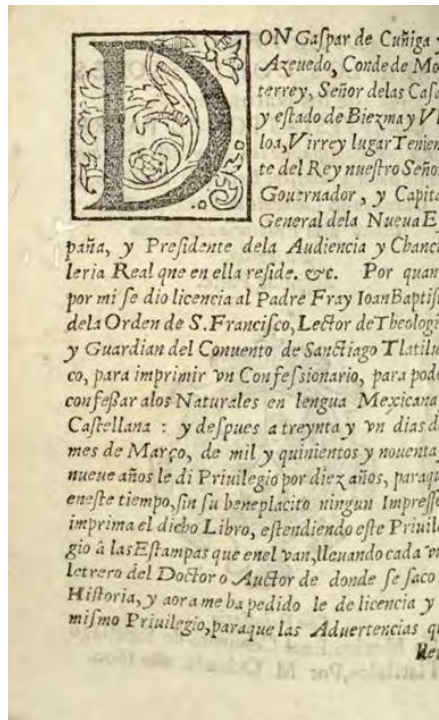 DON Gaſpar de Cuñiga y
Azeuedo, Conde de Mo
terrey, Señor delas Caſa
y eſtado de Biezma y Vl
loa, Virrey lugar Tenien
te del Rey nueſtro Seño
Gouernador, y Capita
General dela Nueua Eſ
paña, y Preſidente dela Audiencia y Chanci
leria Real qne en ella reſide. &c. Por quan
por mi ſe dio licencia al Padre Fray Ioan Baptiſ
dela Orden de S. Franciſco, Lector de Theologi
y Guardian del Conuento de Sanctiago Tlatilu
co, para imprimir vn Confeſsionario, para pode
confeſſar alos Naturales en lengua Mexicana
Caſtellana : y deſpues a treynta y vn dias de
mes de Março, de mil y quinientos y nouenta
nueue años le di Priuilegio por diez años, paraqu
eneſte tiempo, ſin ſu beneplacito ningun Impreſſo
imprima el dicho Libro, eſtendiendo eſte Priuile
gio â las Eſtampas que enel van, lleuando cada vn
letrero del Doctor o Auctor de donde ſe ſaco
Hiſtoria, y aora me ha pedido le de licencia y
miſmo Priuilegio, paraque las Aduertencias qu